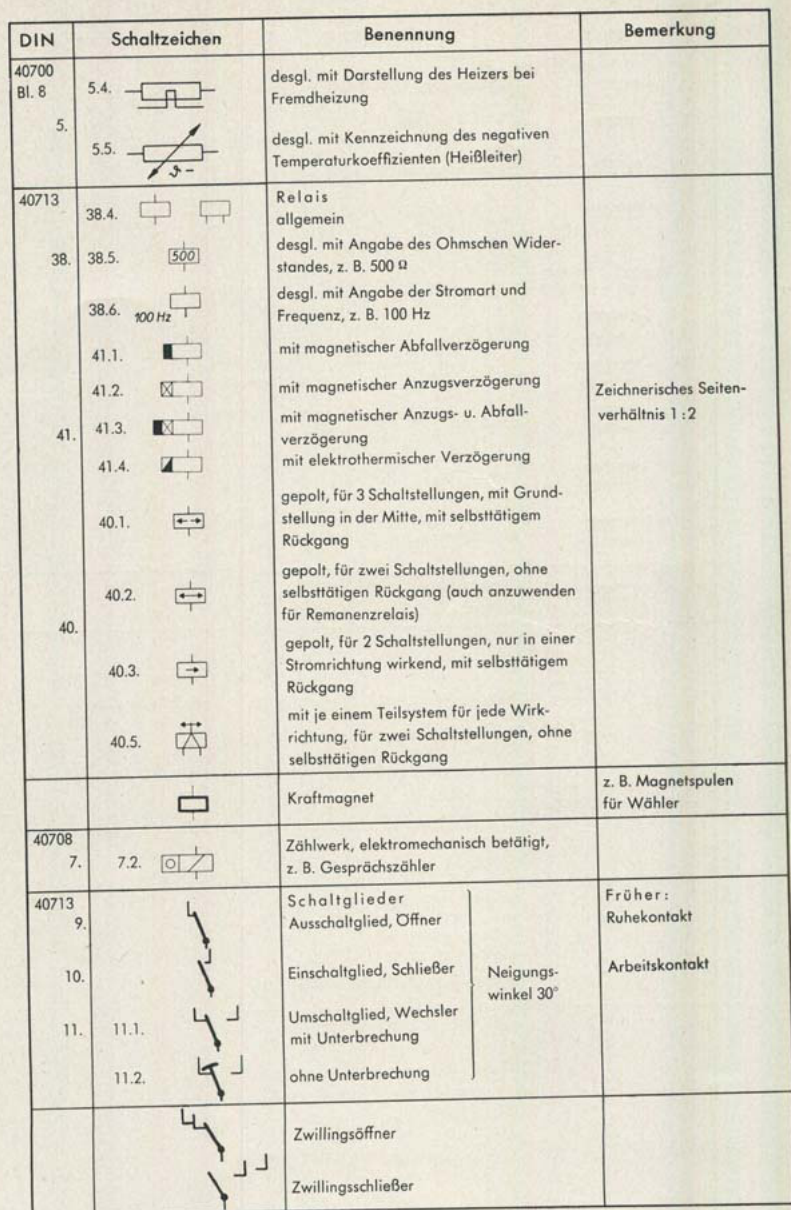 DIN Schaltzeichen Benennung Bemerkung
40700
Bl. 8
5.
5.4. desgl. mit Darstellung des Heizers bei
Fremdheizung
5.5. ϑ – desgl. mit Kennzeichnung des negativen
Temperaturkoeffizienten (Heißleiter)
40713
38.4. Relais
allgemein
38. 38.5. 500 desgl. mit Angabe des Ohmschen Wider-
standes, z. B. 500 Ω
38.6. 100 Hz desgl. mit Angabe der Stromart und
Frequenz, z. B. 100 Hz
41.1. mit magnetischer Abfallverzögerung
41.2. mit magnetischer Anzugsverzögerung
Zeichnerisches Seiten-
verhältnis 1 : 2
41. 41.3. mit magnetischer Anzugs- u. Abfall-
verzögerung
41.4. mit elektrothermischer Verzögerung
40.1. gepolt, für 3 Schaltstellungen, mit Grund-
stellung in der Mitte, mit selbsttätigem
Rückgang
40.2. gepolt, für zwei Schaltstellungen, ohne
selbsttätigen Rückgang (auch anzuwenden
für Remanenzrelais)
40.
40.3. gepolt, für 2 Schaltstellungen, nur in einer
Stromrichtung wirkend, mit selbsttätigem
Rückgang
40.5. mit je einem Teilsystem für jede Wirk-
richtung, für zwei Schaltstellungen, ohne
selbsttätigen Rückgang
Kraftmagnet
z. B. Magnetspulen
für Wähler
40708
7. 7.2. Zählwerk, elektromechanisch betätigt,
z. B. Gesprächszähler
40713
9. Schaltglieder
Ausschaltglied, Öffner
Früher:
Ruhekontakt
10. Einschaltglied, Schließer
Arbeitskontakt
Neigungs-
winkel 30°
11. 11.1. Umschaltglied, Wechsler
mit Unterbrechung
11.2. ohne Unterbrechung
Zwillingsöffner
Zwillingsschließer